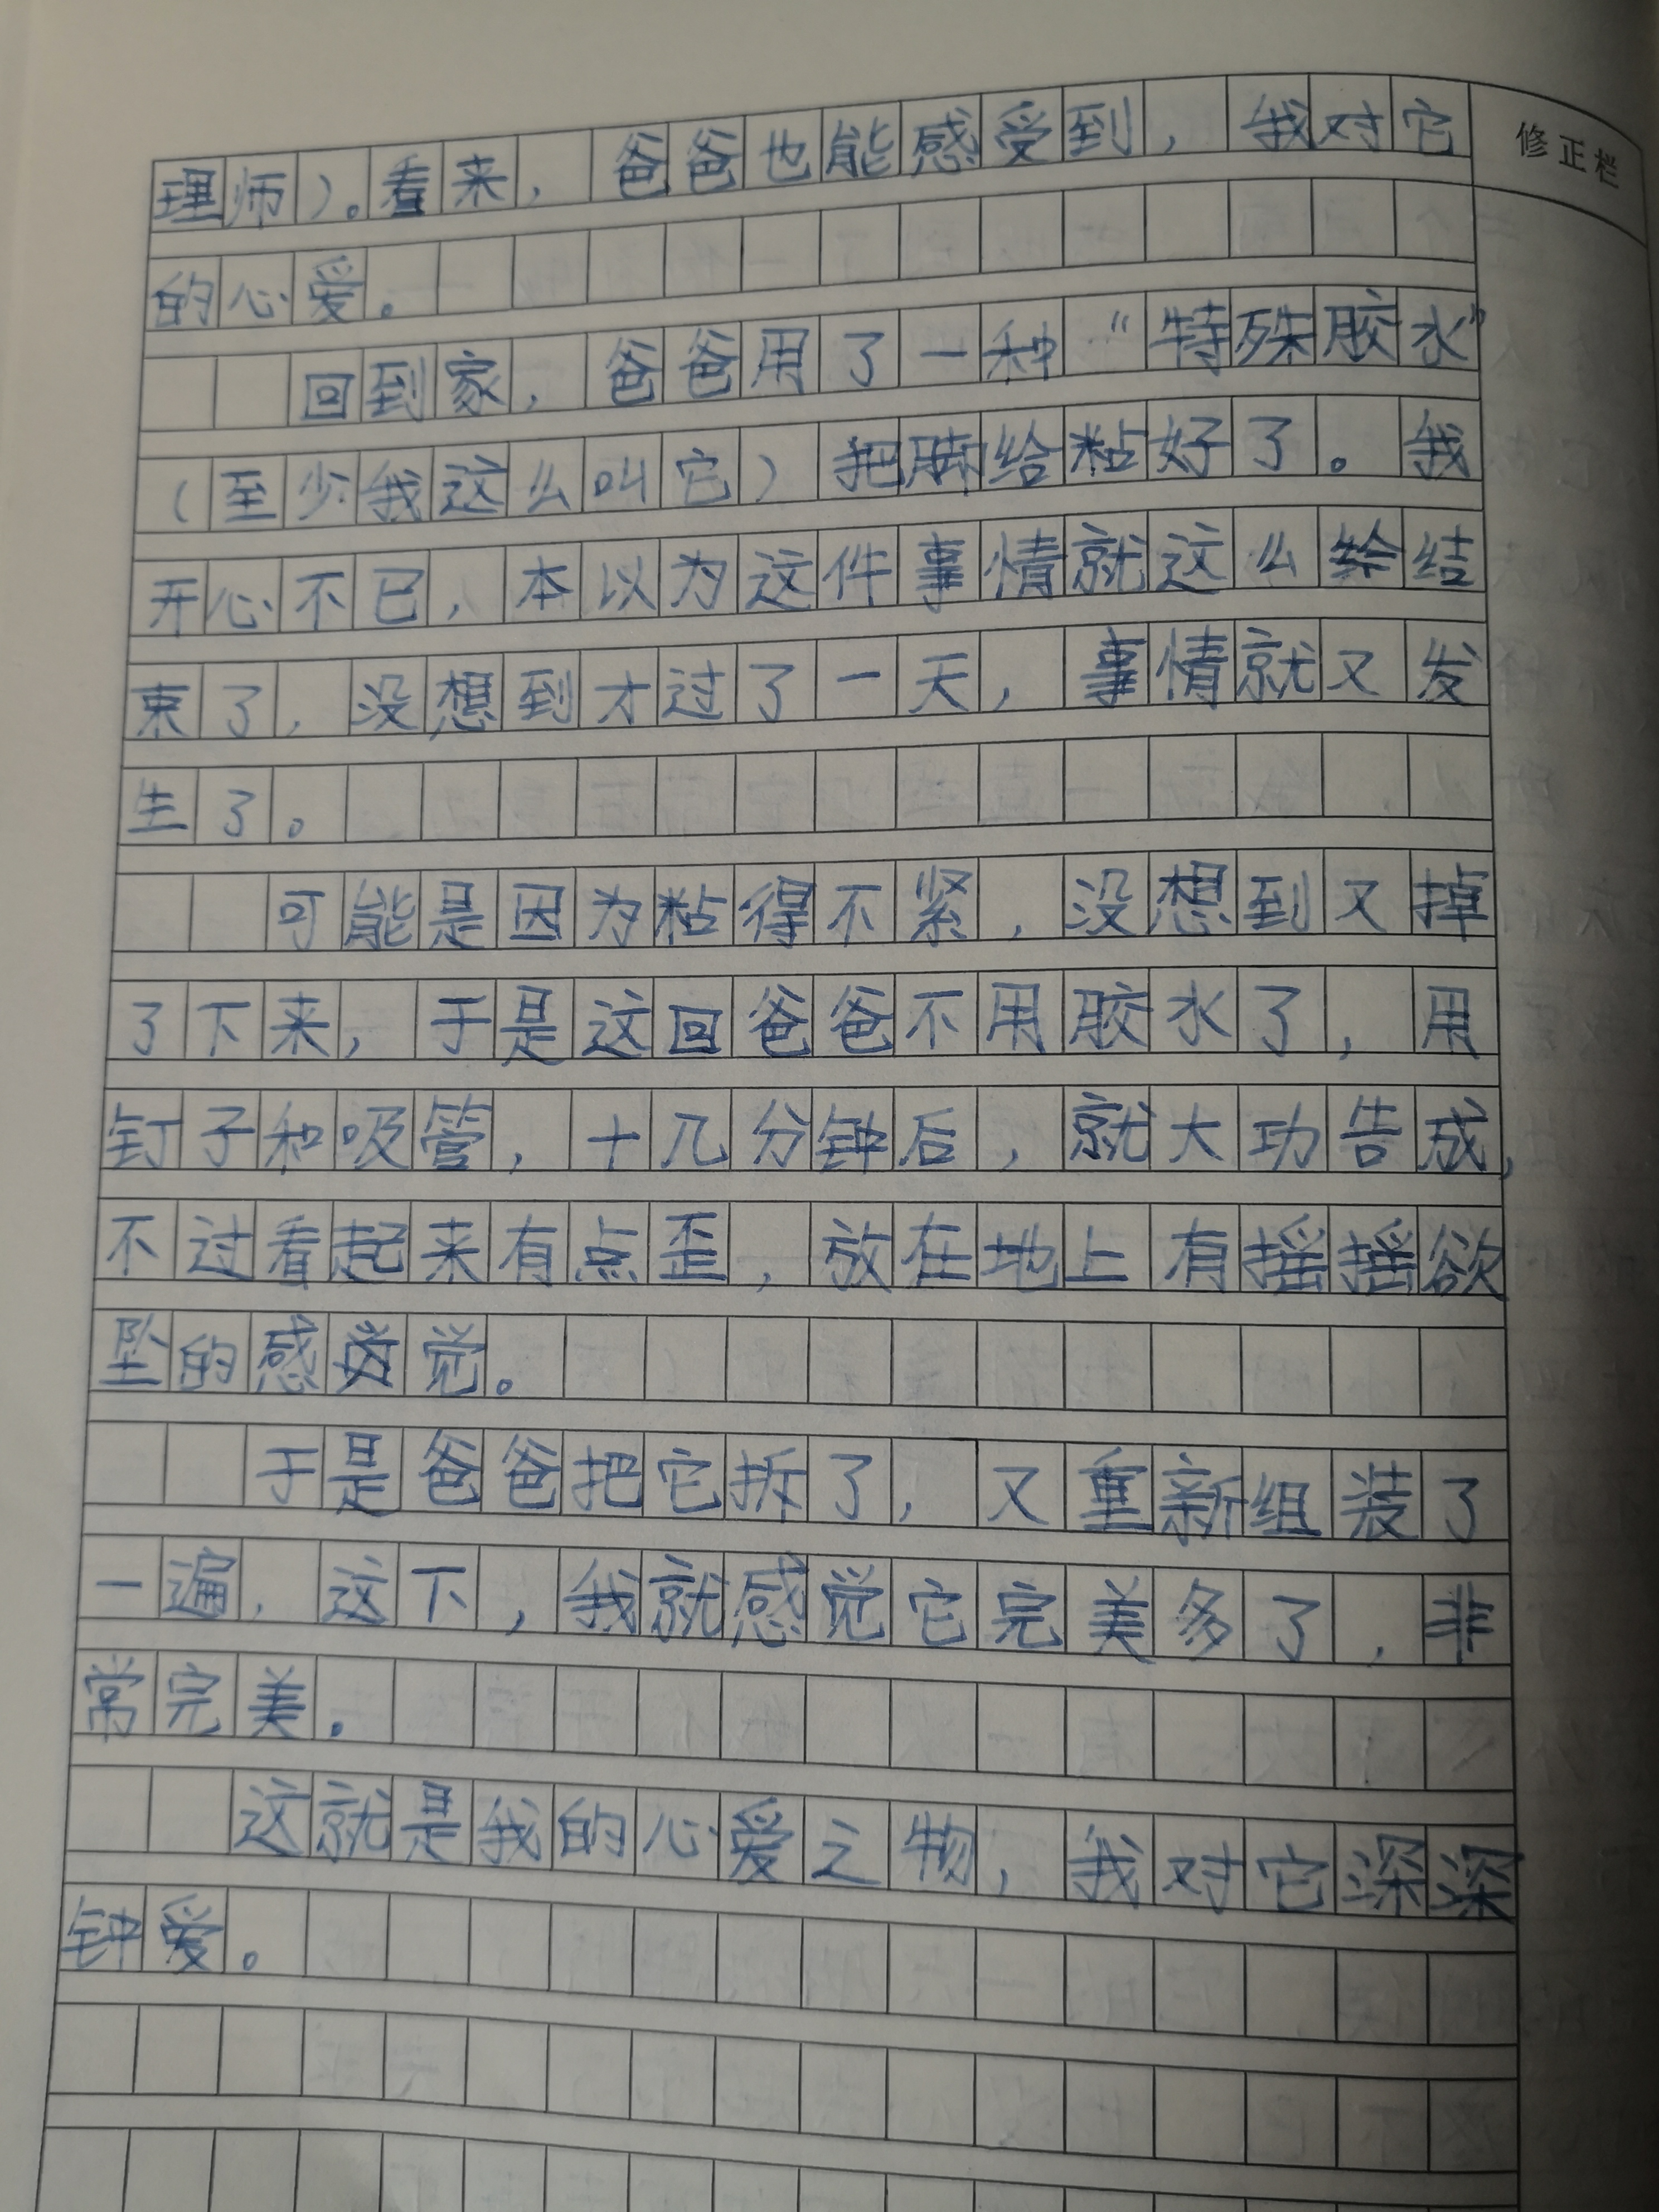 修正栏
理师）。看来，爸爸也能感受到，我对它
的心爱。
回到家，爸爸用了一种“特殊胶水”
（至少我这么叫它）把脚给粘好了。我
开心不已，本以为这件事情就这么给结
束了，没想到才过了一天，事情就又发
生了。
可能是因为粘得不紧，没想到又掉
了下来，于是这回爸爸不用胶水了，用
钉子和吸管，十几分钟后，就大功告成，
不过看起来有点歪，放在地上有摇摇欲
坠的感觉。
于是爸爸把它拆了，又重新组装了
一遍，这下，我就感觉它完美多了，非
常完美。
这就是我的心爱之物，我对它深深
钟爱。